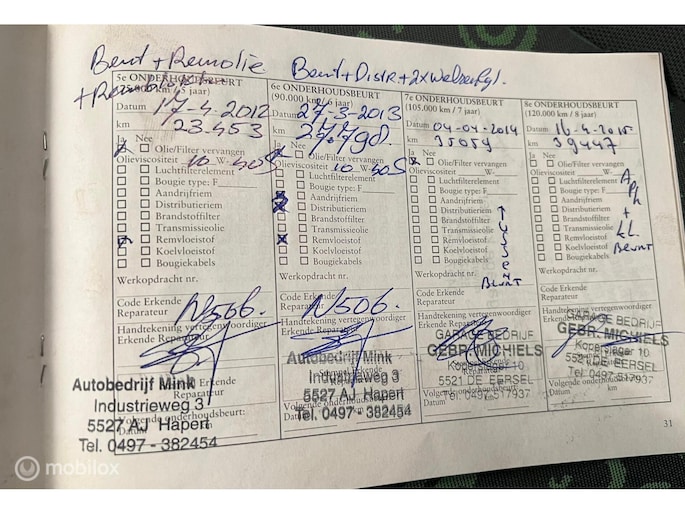 Beurt + Remolie
+ Remblokken
5e ONDERHOUDSBEURT
(75.000 km / 5 jaar)
Datum 17-4-2012
km 23.453
Ja Nee
Olie/Filter vervangen
Olieviscositeit 10 W- 40S
Luchtfilterelement
Bougie type: F
Aandrijfriem
Distributieriem
Brandstoffilter
Transmissieolie
Remvloeistof
Koelvloeistof
Bougiekabels
Werkopdracht nr.
Code Erkende
Reparateur N506.
Handtekening vertegenwoordiger
Erkende Reparateur
Autobedrijf Mink
Industrieweg 3
5527 AJ Hapert
Tel. 0497 - 382454
Volgende onderhoudsbeurt:
Datum km
Beurt + Distr + 2x
6e ONDERHOUDSBEURT
(90.000 km / 6 jaar)
Datum 27-3-2013
km 27.798.
Ja Nee
Olie/Filter vervangen
Olieviscositeit 10 W- 40S
Luchtfilterelement
Bougie type: F
Aandrijfriem
Distributieriem
Brandstoffilter
Transmissieolie
Remvloeistof
Koelvloeistof
Bougiekabels
Werkopdracht nr.
Code Erkende
Reparateur N506.
Handtekening vertegenwoordiger
Erkende Reparateur
Autobedrijf Mink
Industrieweg 3
5527 AJ Hapert
Tel. 0497 - 382454
Volgende onderhoudsbeurt:
Datum km
7e ONDERHOUDSBEURT
(105.000 km / 7 jaar)
Datum 04-04-2014
km 35059
Ja Nee
Olie/Filter vervangen
Olieviscositeit W-
Luchtfilterelement
Bougie type: F
Aandrijfriem
Distributieriem
Brandstoffilter
Transmissieolie
Remvloeistof
Koelvloeistof
Bougiekabels
Tussen
Beurt
Werkopdracht nr.
Code Erkende
Reparateur
Handtekening vertegenwoordiger
Erkende Reparateur
GARAGE BEDRIJF
GEBR. MICHIELS
Kopervlieger 10
5521 DE EERSEL
Tel. 0497-517937
Volgende onderhoudsbeurt:
Datum km
8e ONDERHOUDSBEURT
(120.000 km / 8 jaar)
Datum 16-4-2015
km 39447
Ja Nee
Olie/Filter vervangen
Olieviscositeit W-
Luchtfilterelement
Bougie type: F
Aandrijfriem
Distributieriem
Brandstoffilter
Transmissieolie
Remvloeistof
Koelvloeistof
Bougiekabels
APk
+
Beurt
Werkopdracht nr.
Code Erkende
Reparateur
Handtekening vertegenwoordiger
Erkende Reparateur
GARAGE BEDRIJF
GEBR. MICHIELS
Kopervlieger 10
5521 DE EERSEL
Tel. 0497-517937
Volgende onderhoudsbeurt:
Datum km
31
mobilox